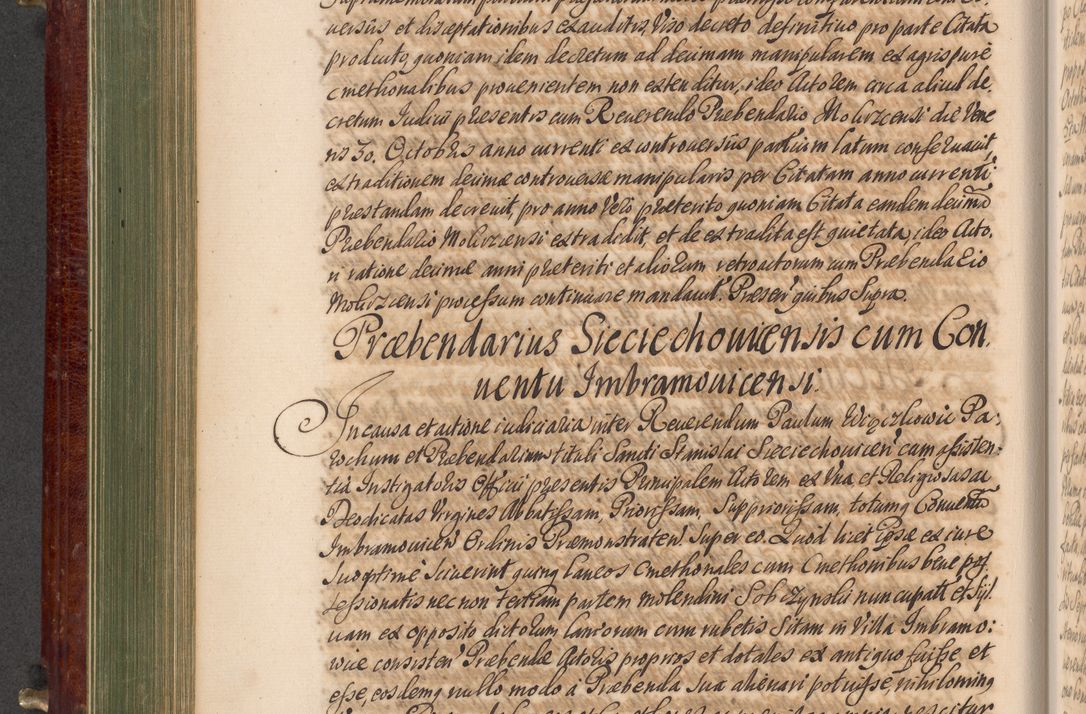 uersûs et disceptationibus exauditis, Viso decreto definitiuo pro parte Citata
producto, quoniam idem decretum ad decimam manipularem ex agris puré
cmethonalibus prouenientem non extenditur, ideo Actorem circa aliud de,
cretum Iudicii præsentis cum Reuerendo Præbendario Molorzcensi die Vene
ris 30. Octobris anno currenti ex controuersiis partium latum conseruauit,
extraditionem decimæ controuersæ manipularis per Citatam anno currenti
præstandam decreuit, pro anno Verò præterito quoniam Citata eandem decimã
Præbendario Molorzcensi extradidit, et de extradita est quietata, ideo Acto,
ri ratione decimæ anni præteriti et aliorum retroactorum cum Præbendario
Molorzcensi processum continuare mandauit. Præsen' quibus Supra.
Præbendarius Sieciechouicensis cum Con,
uentu Imbramouicensi.
In causa et actione iudiciaria inter Reuerendum Paulum Pa,
rochum et Præbendarium tituli Sancti Stanislai Sieciechouicen' cum assisten,
tia Instigatoris Officii præsentis Principalem Actorem ex Vna et Religiosas ac
Deodicatas Virgines Abbatissam, Priorissam, Suppriorissam, totumq Conuentũ
Imbramouicen' Ordinis Præmonstraten' Super eo. Quod licet Ipsæ ex iure
Suo optimé Sciuerint quinq laneos Cmethonales cum Cmethonibus bene pos,
sessionatis nec non tertiam partem molendini Sobczynskii nuncupati et Syl,
uam ex opposito dictorum laneorum cum rubetis Sitam in Villa Imbramo:
wice consisten' Præbendæ Actoris proprios et dotales ex antiquo fuisse et
esse, eosdemq nullo modo à Præbenda Sua alienari potuisse, nihilominq